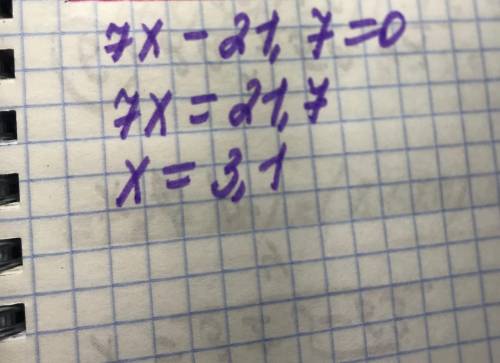 7x - 21,7=0
7x = 21,7
x = 3,1